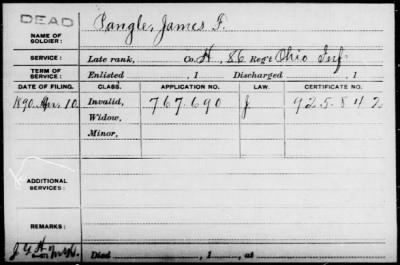 DEAD
NAME OF SOLDIER: Pangle, James F.
SERVICE: Late rank, Co. H, 86 Reg't Ohio Inf.
TERM OF SERVICE: Enlisted , 1 Discharged , 1
DATE OF FILING. CLASS. APPLICATION NO. LAW. CERTIFICATE NO.
1890. Apr. 10. Invalid, 767.690 J 925.842
Widow,
Minor,
ADDITIONAL SERVICES:
REMARKS:
Died , 1 , at